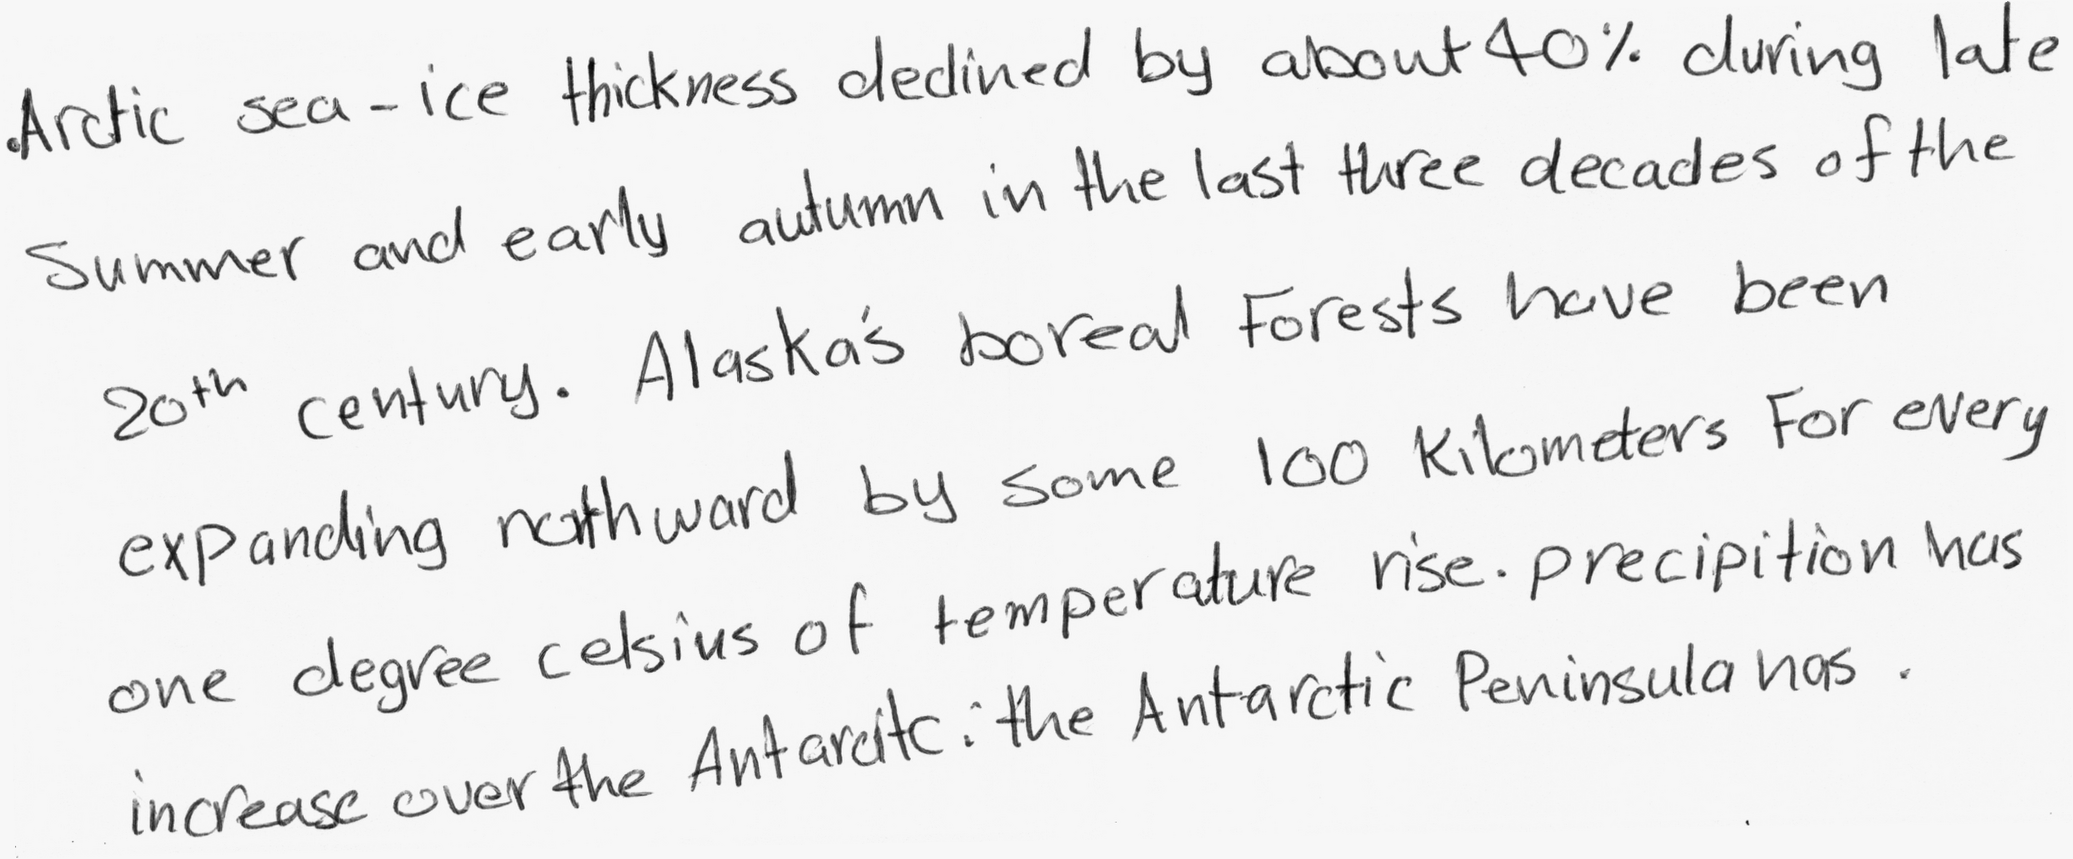 Arctic sea-ice thickness declined by about 40% during late
Summer and early autumn in the last three decades of the
20th century. Alaska's boreal Forests have been
expanding northward by some 100 Kilometers For every
one degree celsius of temperature rise. precipition has
increase over the Antarcitc: the Antarctic Peninsula has.